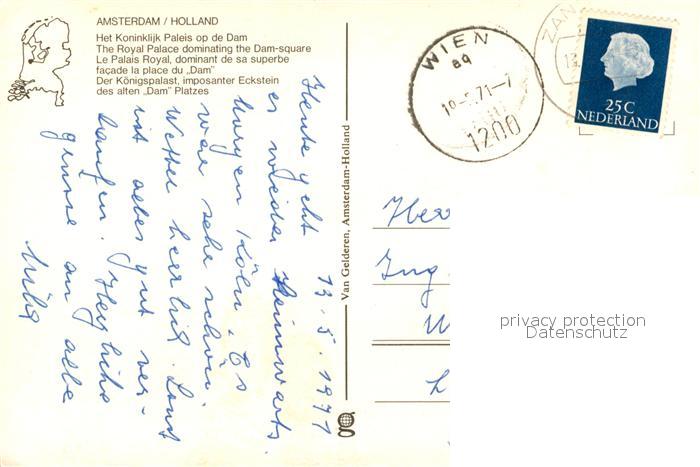 AMSTERDAM / HOLLAND
Het Koninklijk Paleis op de Dam
The Royal Palace dominating the Dam-square
Le Palais Royal, dominant de sa superbe
façade la place du „Dam"
Der Königspalast, imposanter Eckstein
des alten „Dam" Platzes
13.5.1971
Heute geht
es wieder Heimwärts.
Morgen Köln. Es
war sehr schön.
Wetter herrlich. Sonst
ist alles gut ver-
laufen. Herzliche
grüsse an alle
Van Gelderen, Amsterdam-Holland
WIEN
1200
ZAN
25C
NEDERLAND
Herr
Ing.
W
privacy protection
Datenschutz